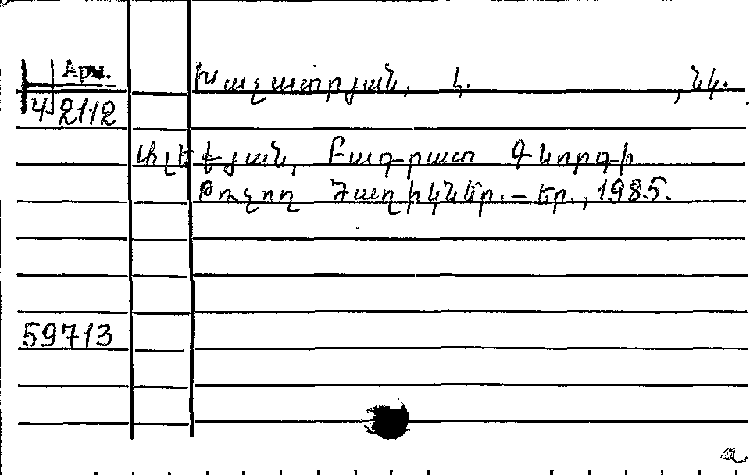 Арм. Խաչատրյան, Կ. , նկ.
4 2112
Ալեքյան, Բագրատ Գևորգի
Թռչող ծաղիկներ. – Եր., 1985.
59713